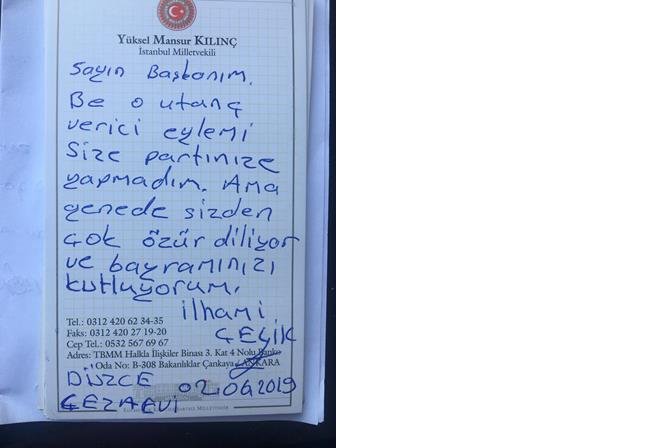 Yüksel Mansur KILINÇ
İstanbul Milletvekili
Sayın Başkanım.
Be o utanç
verici eylemi
Size partinize
yapmadım. Ama
genede sizden
çok özür diliyor
ve bayramınızı
kutluyorum.
ilhami
Tel.: 0312 420 62 34-35
Faks: 0312 420 27 19-20
Cep Tel.: 0532 567 69 67
Adres: TBMM Halkla İlişkiler Binası 3. Kat 4 Nolu Banko
Oda No: B-308 Bakanlıklar Çankaya / ANKARA
DÜZCE 02.06.2019
CEZAEVİ